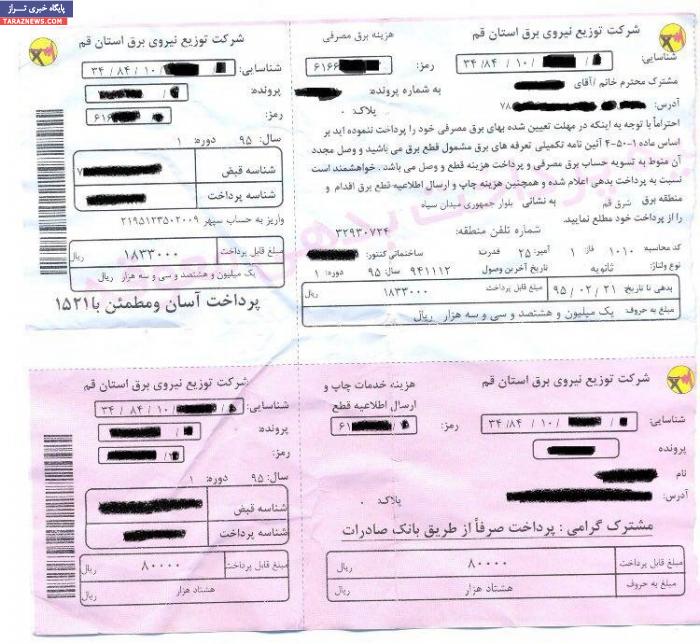 پایگاه خبری تراز
TARAZNEWS.COM
شرکت توزیع نیروی برق استان قم
هزینه برق مصرفی
شناسایی: ۳۴/۸۴/۱۰/
رمز: ۶۱۶۶
مشترک محترم خانم /آقای
به شماره پرونده:
آدرس: ۷۸
پلاک: ۰
احتراماً با توجه به اینکه در مهلت تعیین شده بهای برق مصرفی خود را پرداخت ننموده اید بر
اساس ماده ۱-۵۰-۴ آئین نامه تکمیلی تعرفه های برق مشمول قطع برق می باشید و وصل مجدد
آن منوط به تسویه حساب برق مصرفی و پرداخت هزینه قطع و وصل می باشد . خواهشمند است
نسبت به پرداخت بدهی اعلام شده و همچنین هزینه چاپ و ارسال اطلاعیه قطع برق اقدام و
منطقه برق شرق قم به نشانی بلوار جمهوری میدان سپاه
را از پرداخت خود مطلع نمایید.
شماره تلفن منطقه: ۳۲۹۳۰۷۲۴
کد محاسبه: ۱۰۱۰ فاز: ۱ آمپر: ۲۵ قدرت: ساختمانی کنتور:
نوع ولتاژ: ثانویه تاریخ آخرین وصول ۹۴۱۱۱۲ سال: ۹۵ دوره: ۱
بدهی تا تاریخ: ۹۵/۰۲/۲۱ مبلغ قابل پرداخت ۱۸۳۳۰۰۰ ریال
مبلغ به حروف: یک میلیون و هشتصد و سی و سه هزار ریال
شرکت توزیع نیروی برق استان قم
شناسایی: ۳۴/۸۴/۱۰/
پرونده:
رمز: ۶۱۶
سال: ۹۵ دوره: ۱
شناسه قبض ۷
شناسه پرداخت
واریز به حساب سپهر ۲۱۹۵۱۲۳۵۰۲۰۰۹
مبلغ قابل پرداخت ۱۸۳۳۰۰۰ ریال
یک میلیون و هشتصد و سی و سه هزار ریال
پرداخت آسان ومطمئن با۱۵۲۱
شرکت توزیع نیروی برق استان قم
هزینه خدمات چاپ و
ارسال اطلاعیه قطع
شناسایی: ۳۴/۸۴/۱۰/
رمز: ۶۱
پرونده
نام
آدرس:
پلاک: ۰
مشترک گرامی : پرداخت صرفاً از طریق بانک صادرات
مبلغ قابل پرداخت ۸۰۰۰۰ ریال
مبلغ به حروف هشتاد هزار ریال
شرکت توزیع نیروی برق استان قم
شناسایی: ۳۴/۸۴/۱۰/
پرونده:
رمز:
سال: ۹۵ دوره: ۱
شناسه قبض
شناسه پرداخت
مبلغ قابل پرداخت ۸۰۰۰۰ ریال
هشتاد هزار ریال